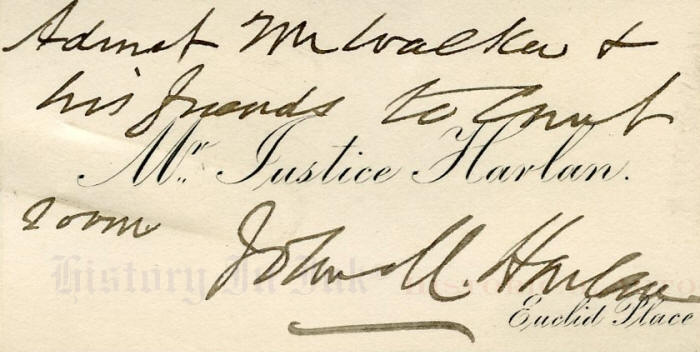 Admit Mr Walker &
his friends to Court
Mr. Justice Harlan.
room
John M. Harlan
History In Ink
Euclid Place